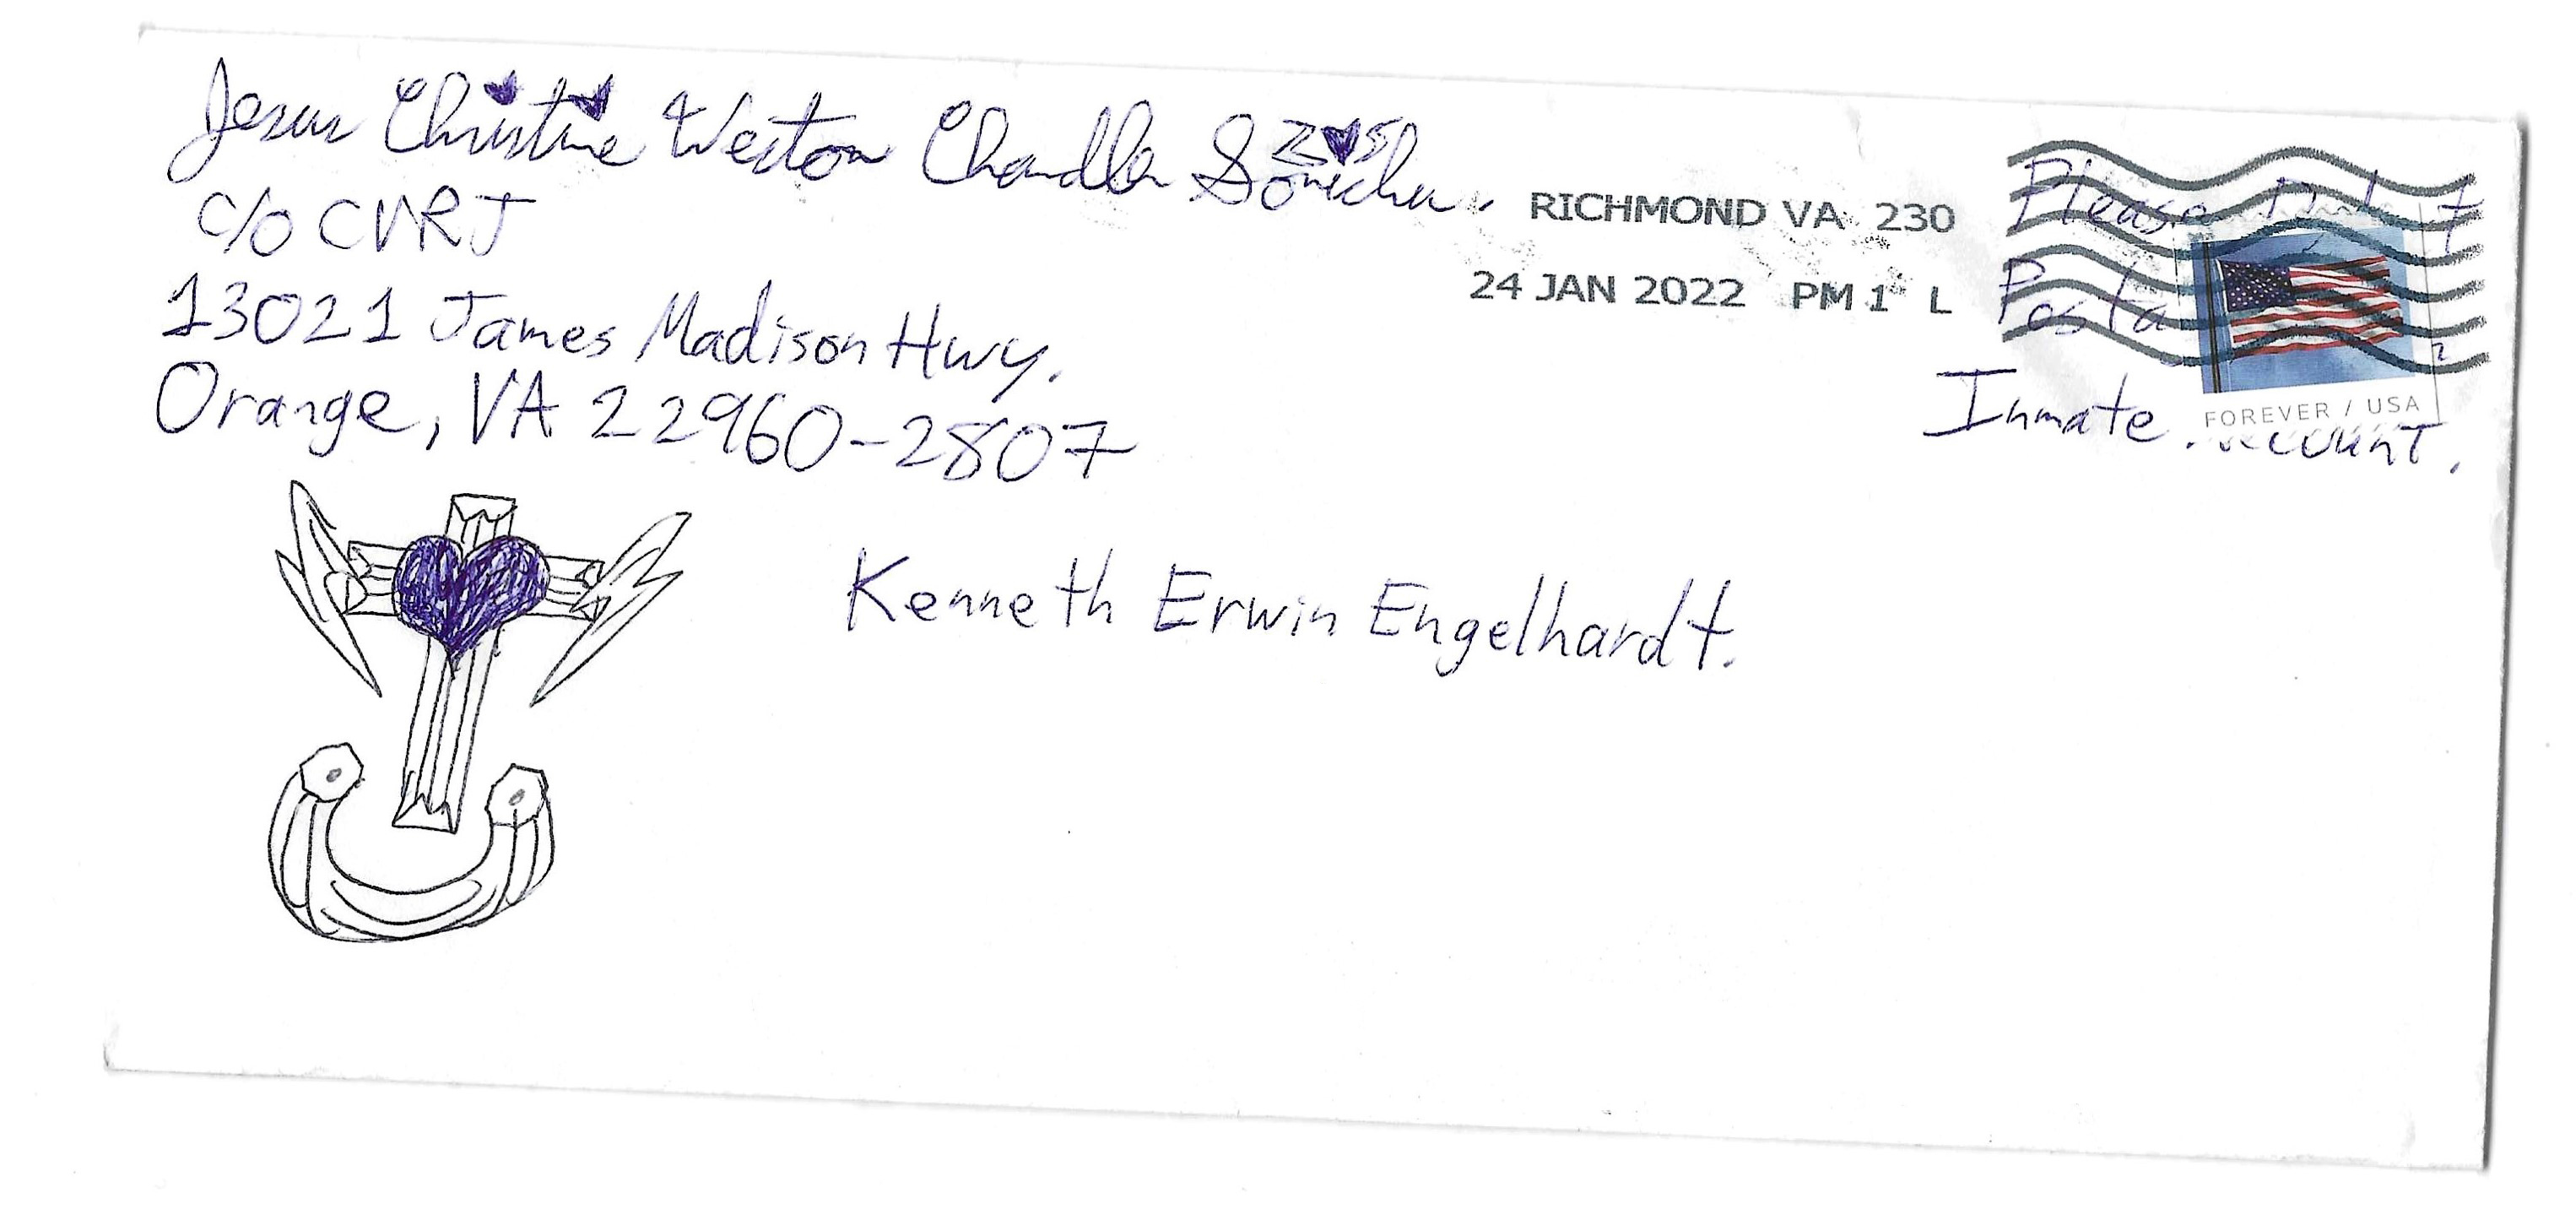 Jesus Christine Weston Chandler Sonichu.
C/O CVRJ
13021 James Madison Hwy.
Orange, VA 22960-2807
RICHMOND VA 230
24 JAN 2022 PM 1 L
Please
Inmate
FOREVER / USA
Kenneth Erwin Engelhardt.